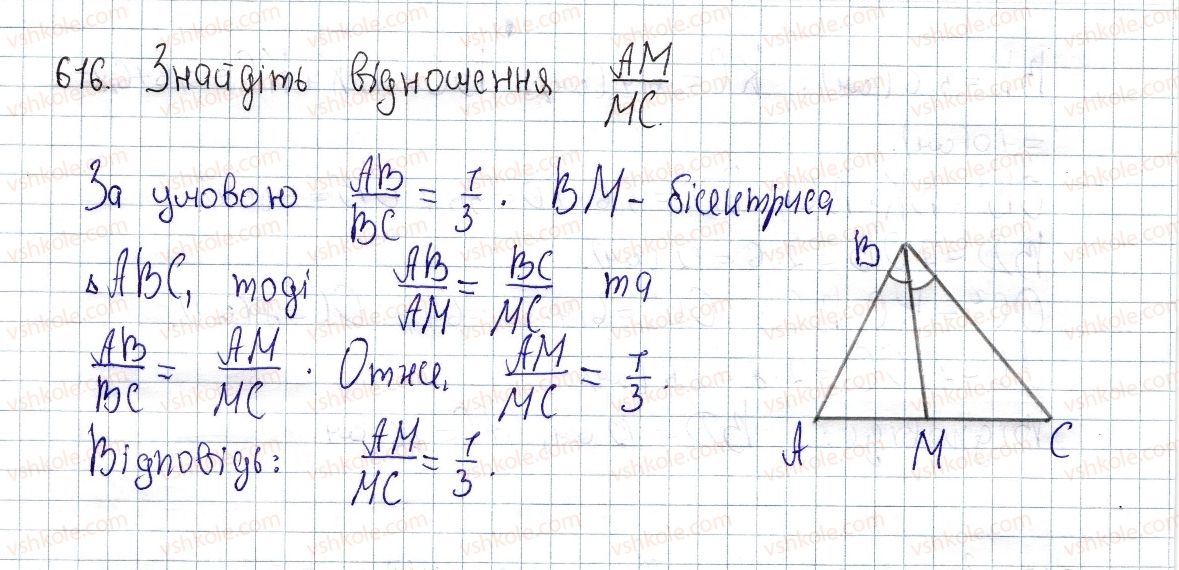 616. Знайдіть відношення AM/MC.
За умовою AB/BC = 1/3. BM - бісектриса
△ABC, тоді AB/AM = BC/MC та
AB/BC = AM/MC. Отже, AM/MC = 1/3.
Відповідь: AM/MC = 1/3.
B
A M C
vshkole.com